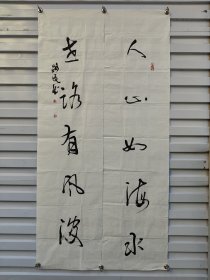 人心如海水
世路有风波